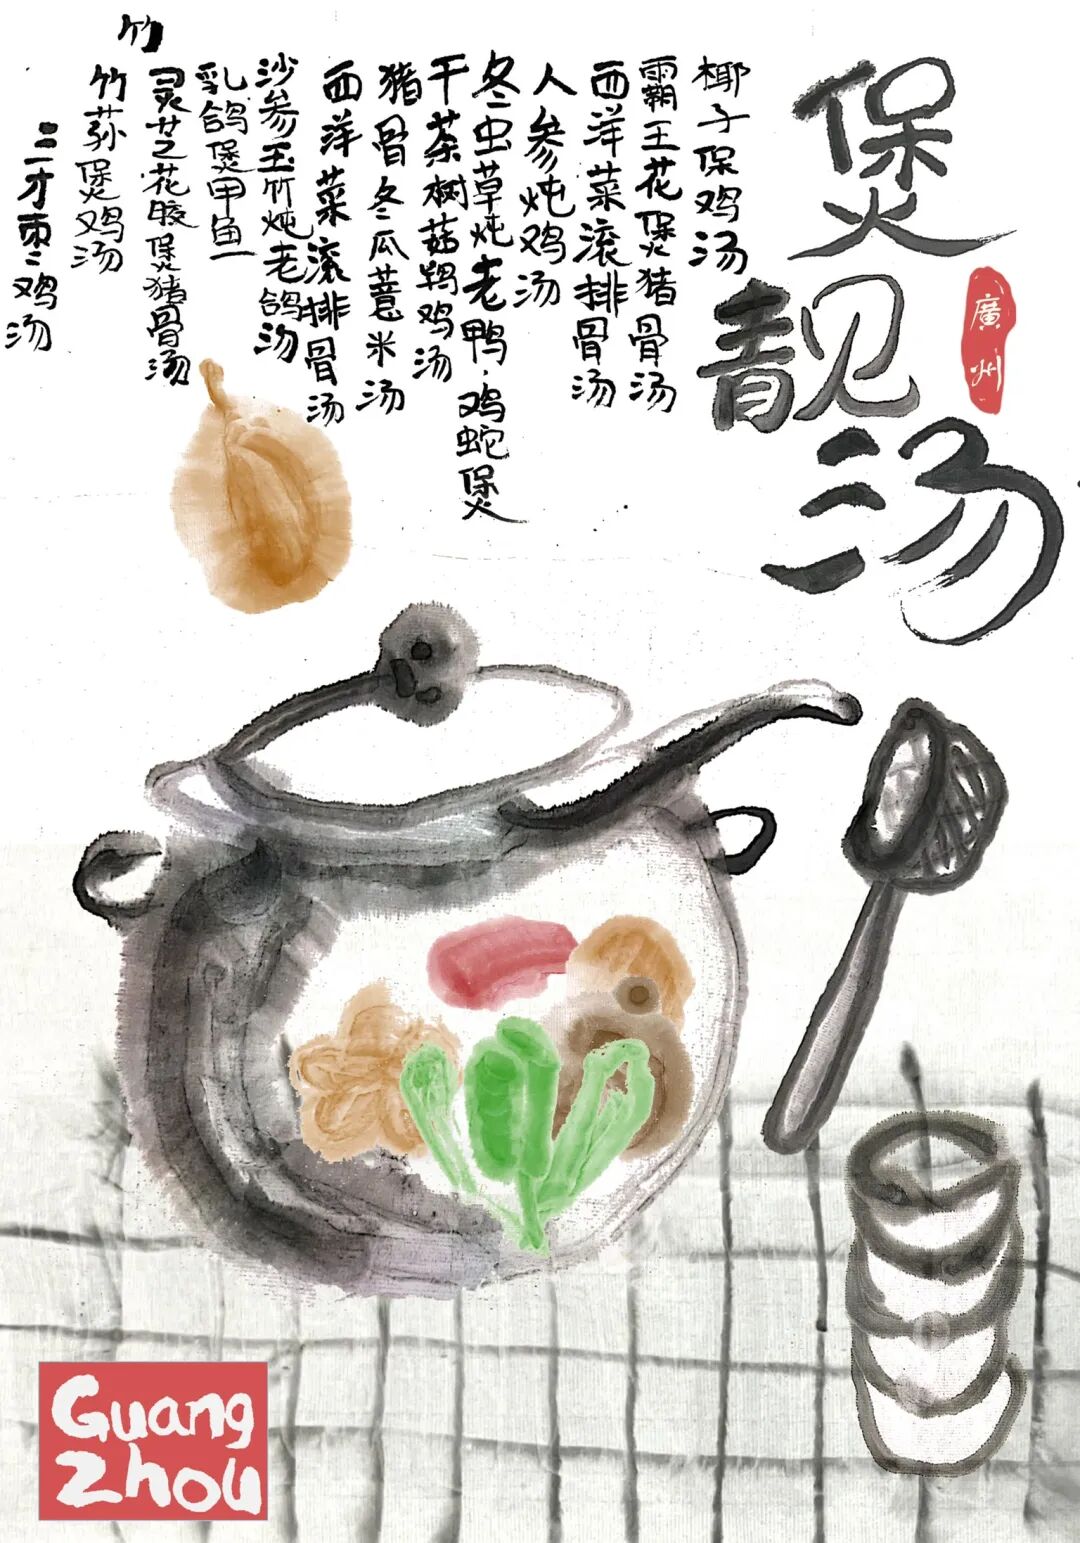 煲靓汤
廣州
椰子保鸡汤
霸王花煲猪骨汤
西洋菜滚排骨汤
人参炖鸡汤
冬虫草炖老鸭.鸡蛇煲
干茶树菇鸡汤
猪骨冬瓜薏米汤
西洋菜滚排骨汤
沙参玉竹炖老鸽汤
乳鸽煲甲鱼
灵芝花胶煲猪骨汤
竹
竹荪煲鸡汤
鸡汤
Guang
Zhou